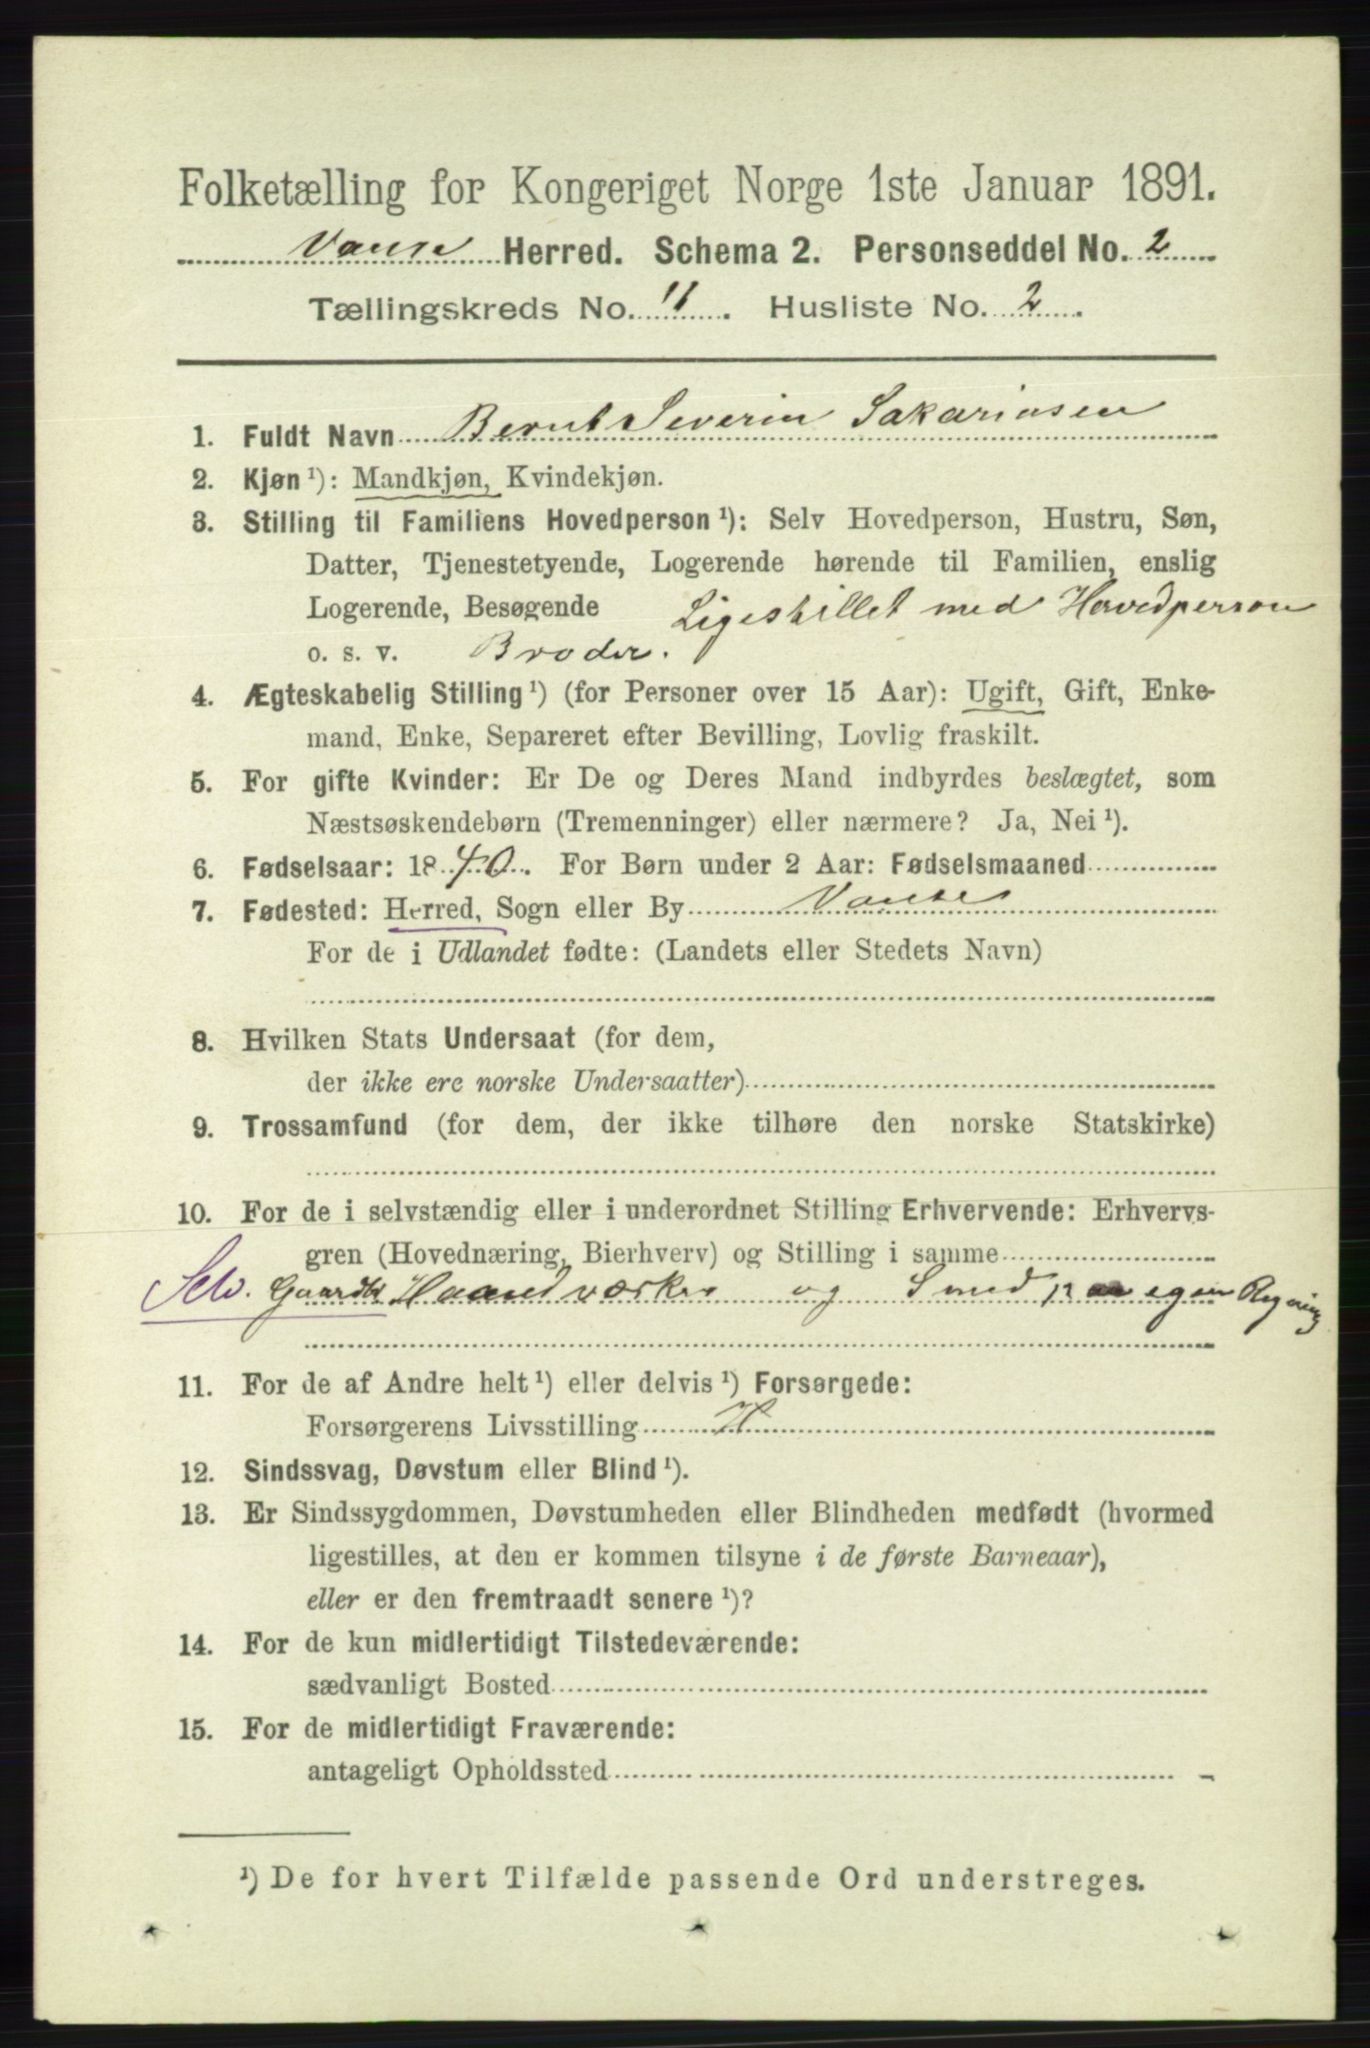 Folketælling for Kongeriget Norge 1ste Januar 1891.
Vanse Herred. Schema 2. Personseddel No. 2
Tællingskreds No. 11. Husliste No. 2.
1. Fuldt Navn Bernt Severin Sakariasen
2. Kjøn ¹): Mandkjøn, Kvindekjøn.
3. Stilling til Familiens Hovedperson ¹): Selv Hovedperson, Hustru, Søn,
Datter, Tjenestetyende, Logerende hørende til Familien, enslig
Logerende, Besøgende Ligestillet med Hovedperson
o. s. v. Broder.
4. Ægteskabelig Stilling ¹) (for Personer over 15 Aar): Ugift, Gift, Enke-
mand, Enke, Separeret efter Bevilling, Lovlig fraskilt.
5. For gifte Kvinder: Er De og Deres Mand indbyrdes beslægtet, som
Næstsøskendebørn (Tremenninger) eller nærmere? Ja, Nei ¹).
6. Fødselsaar: 1840. For Børn under 2 Aar: Fødselsmaaned
7. Fødested: Herred, Sogn eller By Vanse
For de i Udlandet fødte: (Landets eller Stedets Navn)
8. Hvilken Stats Undersaat (for dem,
der ikke ere norske Undersaatter)
9. Trossamfund (for dem, der ikke tilhøre den norske Statskirke)
10. For de i selvstændig eller i underordnet Stilling Erhvervende: Erhvervs-
gren (Hovednæring, Bierhverv) og Stilling i samme
Selv. Gaardbr Haandværker og Smed paa egen Regning
11. For de af Andre helt ¹) eller delvis ¹) Forsørgede:
Forsørgerens Livsstilling H
12. Sindssvag, Døvstum eller Blind ¹).
13. Er Sindssygdommen, Døvstumheden eller Blindheden medfødt (hvormed
ligestilles, at den er kommen tilsyne i de første Barneaar),
eller er den fremtraadt senere ¹)?
14. For de kun midlertidigt Tilstedeværende:
sædvanligt Bosted
15. For de midlertidigt Fraværende:
antageligt Opholdssted
¹) De for hvert Tilfælde passende Ord understreges.